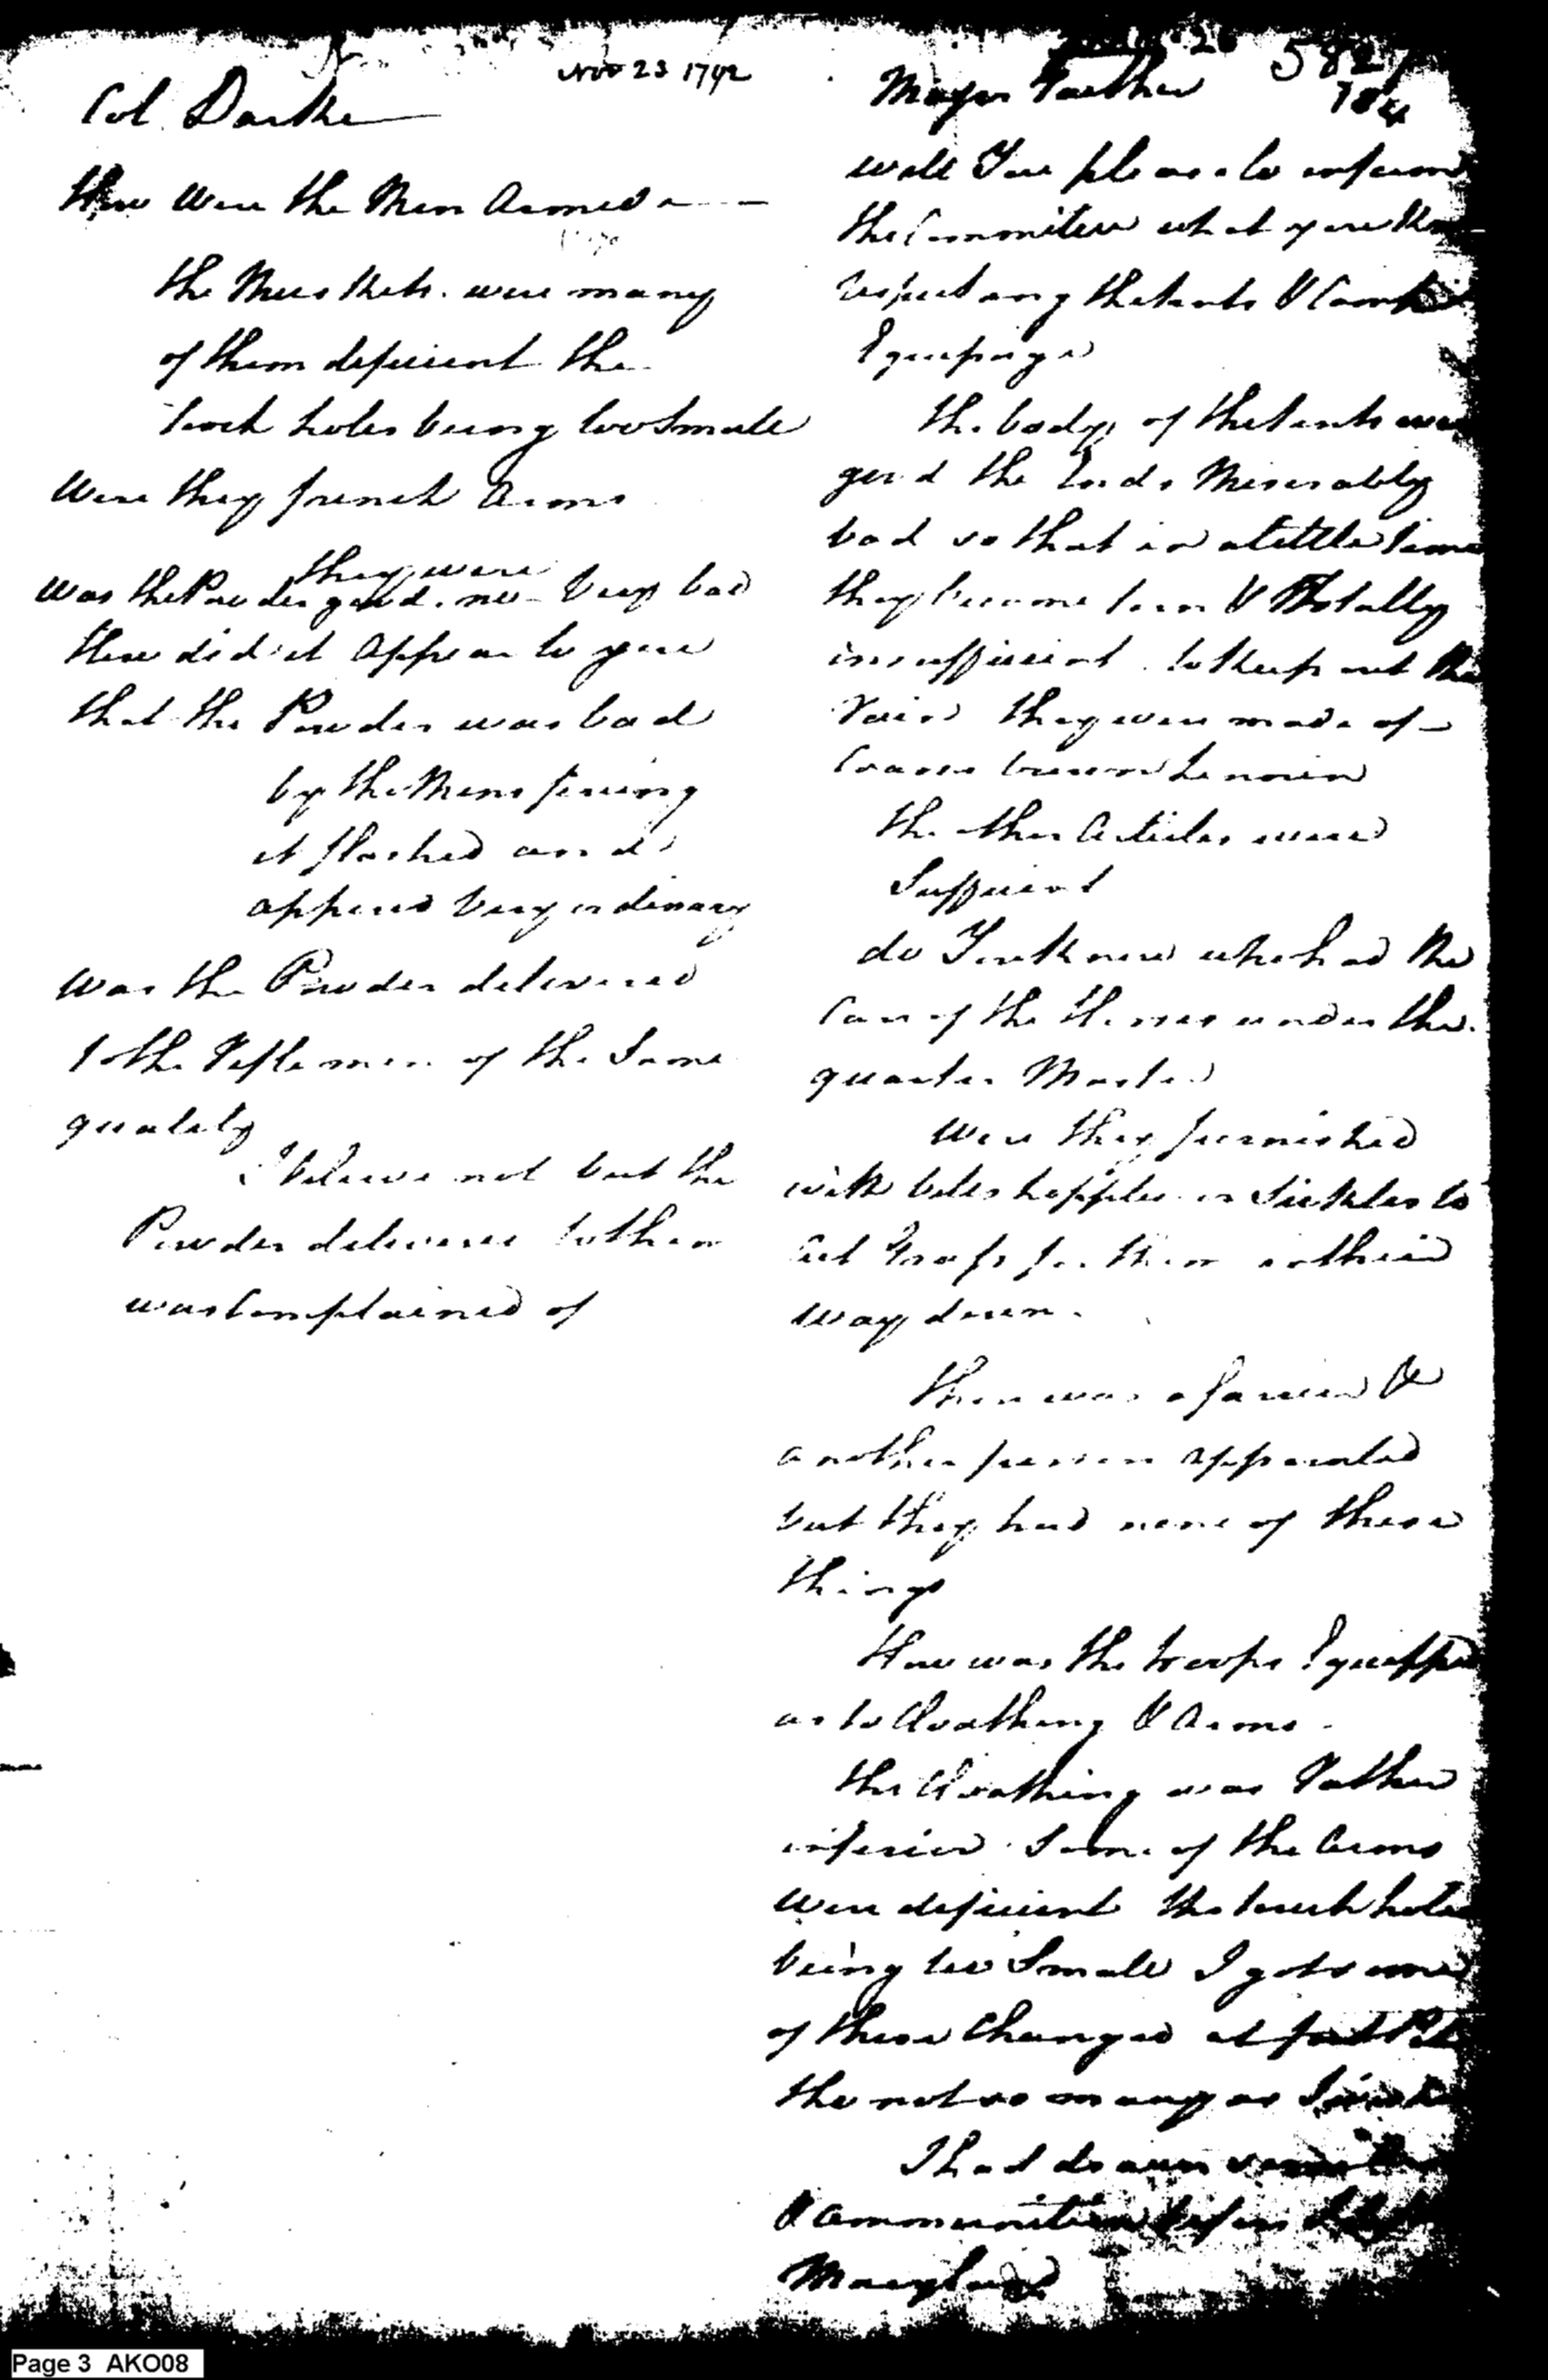 Nov 23 1792
Col. Darke
How Were the Men Armed
the Muskets. were many
of them deficient the
touch holes being too Small
Were they french Arms
they were
Was the Powder good. no - Very bad
How did it Appear to you
that the Powder was bad
by the Mens fireing
it flashed and
appeard Very ordinary
Was the Powder delivered
to the Riflemen of the Same
quality
I beleive not but the
Powder delivered to them
was Complained of
5827
184
Major
will You please to inform
the Committee what you
respecting the tents & Camp
Equipage
the body of the tents were
good the Ends Miserably
bad so that in a little time
they became torn & totally
insufficient to keep out the
rain they were made of
Coarse brown Linnen
the other Articles were
Sufficient
do You know who had the
Care of the Horses under the
quarter Master
Were they furnished
with bells hopples or Sickles to
Cut Grass for them on their
way down.
there was a farrier &
another person appointed
but they had none of these
things
How was the troops Equipped
as to Cloathing & Arms
the Cloathing was rather
inferior Some of the Arms
were deficient the touch holes
being too Small I got some
of these Changed at fort
tho not so many as I
I had drawn
& Ammunition before I left
Maryland
Page 3 AKO08